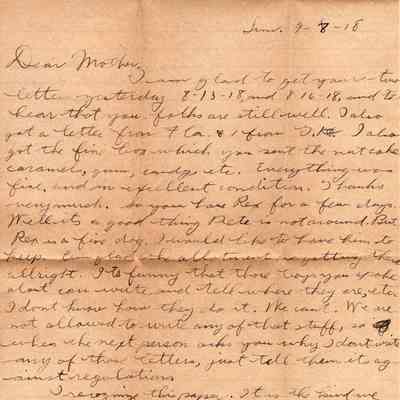 Sun. 9-8-18
Dear Mother,
I am glad to get your two
letters yesterday 8-13-18, and 8-16-18, and to
hear that you folks are still well. I also
got a letter from Fla. & 1 from I also
got the fine box which you sent the nut cake
caramels, gum, candy, etc. Everything was
fine, and in excellent condition. Thanks
very much. So you have Rex for a few days.
Well its a good thing Pete is not around. But
Rex is a fine dog. I would like to have him to
keep. glad the allotment is getting there
allright. Its funny that those boys you spoke
about can write and tell where they are, etc.
I dont know how they do it. We cant. We are
not allowed to write any of that stuff, so
when the next person asks you why I dont write
any of those letters, just tell them its ag
ainst regulations.
I recognize this paper. It is the kind we